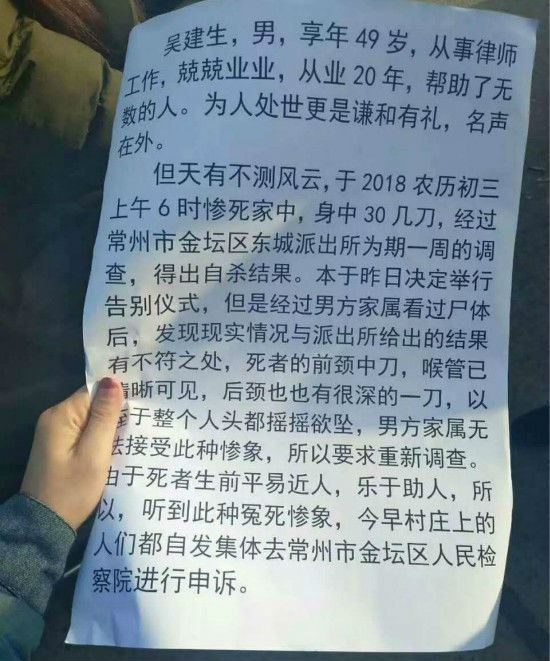 吴建生，男，享年49岁，从事律师
工作，兢兢业业，从业20年，帮助了无
数的人。为人处世更是谦和有礼，名声
在外。
但天有不测风云，于2018农历初三
上午6时惨死家中，身中30几刀，经过
常州市金坛区东城派出所为期一周的调
查，得出自杀结果。本于昨日决定举行
告别仪式，但是经过男方家属看过尸体
后，发现现实情况与派出所给出的结果
有不符之处，死者的前颈中刀，喉管已
清晰可见，后颈也也有很深的一刀，以
至于整个人头都摇摇欲坠，男方家属无
法接受此种惨象，所以要求重新调查。
由于死者生前平易近人，乐于助人，所
以，听到此种冤死惨象，今早村庄上的
人们都自发集体去常州市金坛区人民检
察院进行申诉。